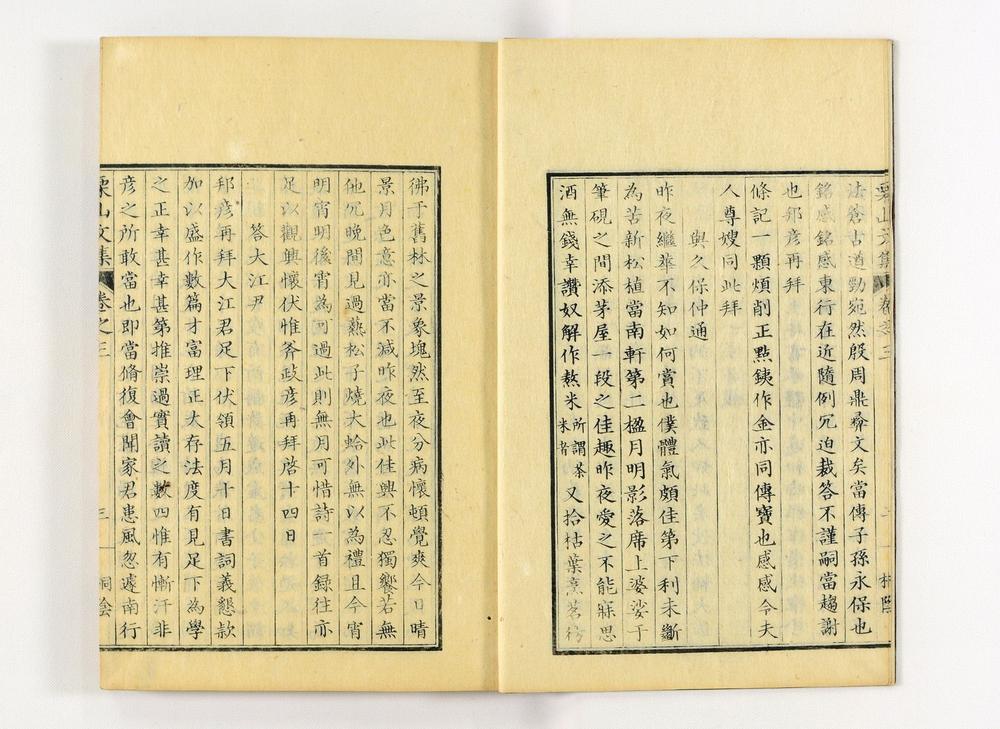 法蒼古道勁宛然殷周鼎彝文矣當傳子孫永保也
銘感銘感東行在近隨例冗迫裁答不謹嗣當趨謝
也邦彦再拜
條記一顆煩削正點鐵作金亦同傳寶也感感令夫
人尊嫂同此拜
與久保仲通
昨夜繼華不知如何賞也僕體氣頗佳第下利未斷
為苦新松植當南軒第二楹月明影落席上婆娑于
筆硯之間添茅屋一段之佳趣昨夜愛之不能寐思
酒無錢幸讚奴解作熬米所謂茶米者又拾枯葉烹茗彷
彿于舊林之景象塊然至夜分病懷頓覺爽今日晴
景月色意亦當不減昨夜也此佳興不忍獨饗若無
他冗晚間見過爇松子燒大蛤外無以為禮且今宵
明宵明後宵為可過此則無月可惜詩一首錄往亦
足以觀興懷伏惟斧政彦再拜啓十四日
答大江尹
邦彦再拜大江君足下伏領五月十日書詞義懇款
加以盛作數篇才富理正大存法度有見足下為學
之正幸甚幸甚第推崇過實讀之數四惟有慚汗非
彦之所敢當也即當脩復會聞家君患風忽遽南行
栗山文集 卷之三 三